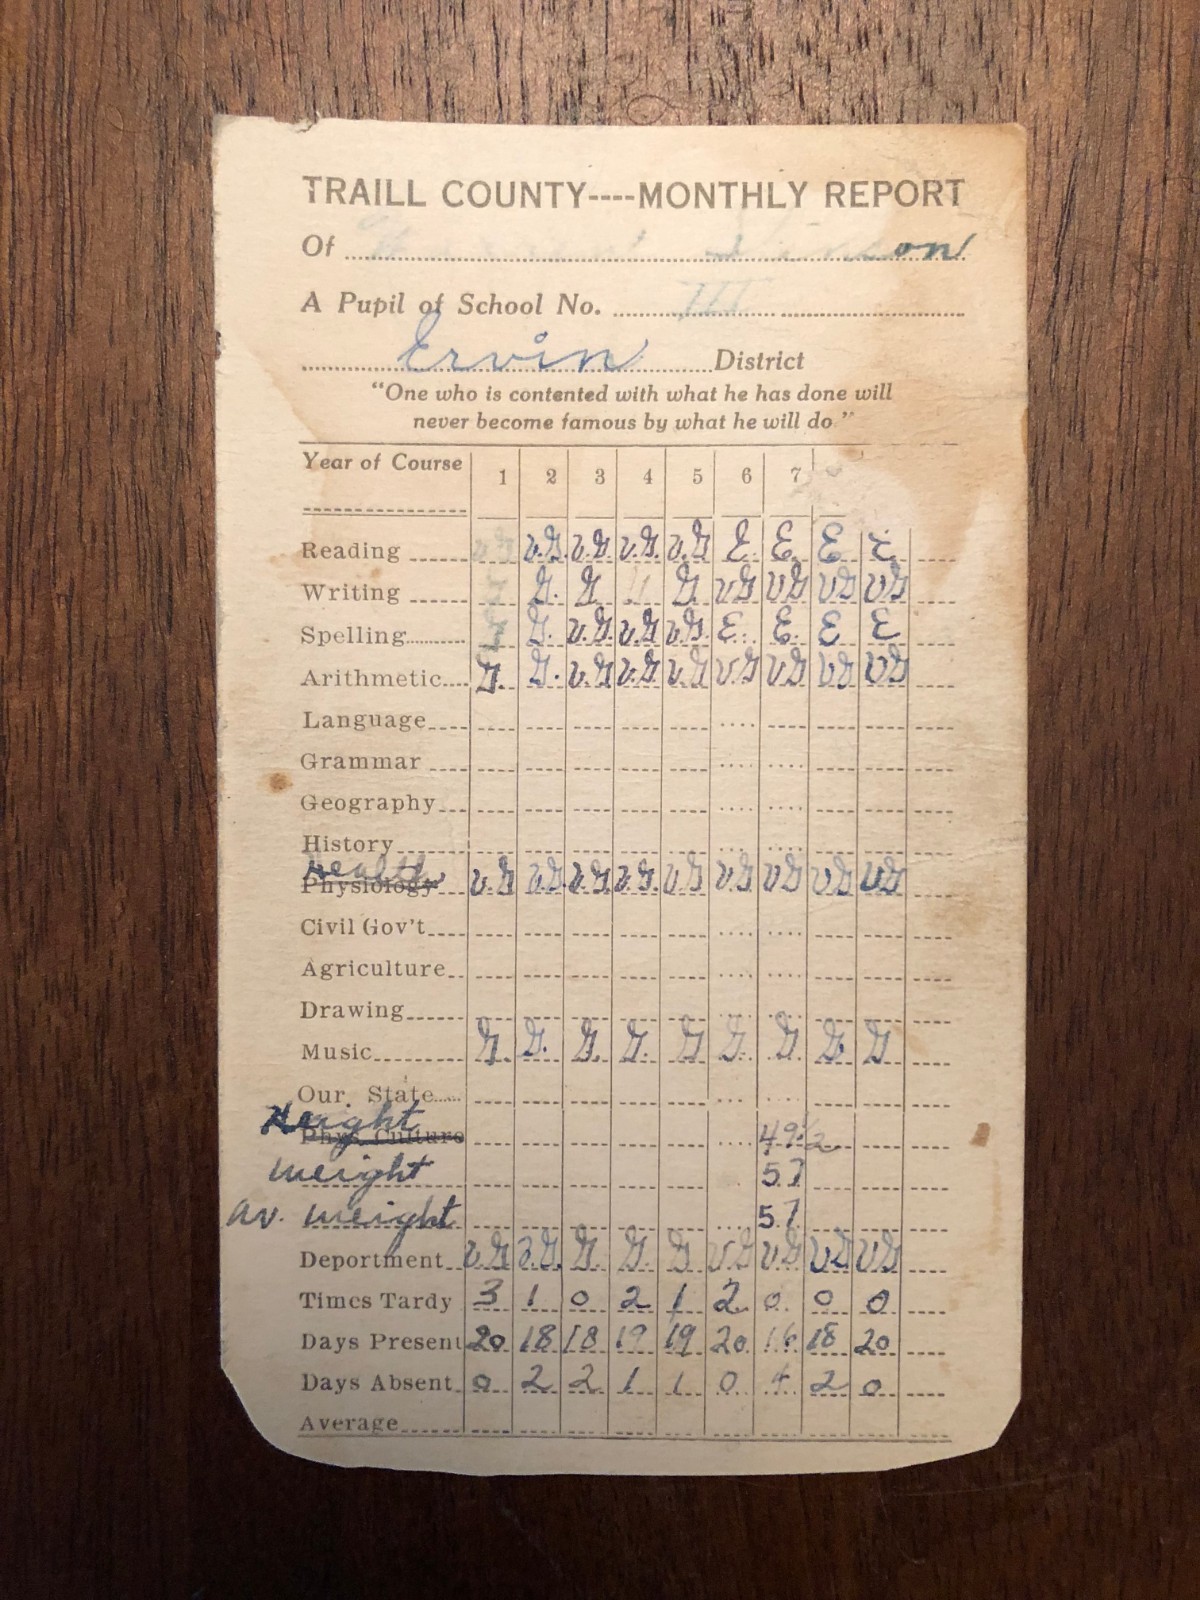 TRAILL COUNTY----MONTHLY REPORT
Of on
A Pupil of School No. III
Ervin District
"One who is contented with what he has done will
never become famous by what he will do."
Year of Course 1 2 3 4 5 6 7
Reading V.G. V.G. V.G. V.G. V.G. E. E. E E
Writing G. G G. VG VG VG VG
Spelling G. V.G. V.G. V.G. E. E. E E
Arithmetic G. G. V.G. V.G. V.G V.G VG VG VG
Language
Grammar
Geography
History
Health
Physiology V.G V.G. V.G. V.G. V.G VG VG VG VG
Civil Gov't
Agriculture
Drawing
Music G. G. G. G. G G. G G. G
Our State
Height
Phys. Culture 49½
Weight 57
Av. Weight 57
Deportment V.G V.G. G. G. G VG V.G VG VG
Times Tardy 3 1 0 2 1 2 0 0 0
Days Present 20 18 18 19 19 20 16 18 20
Days Absent 0 2 2 1 1 0 4 2 0
Average